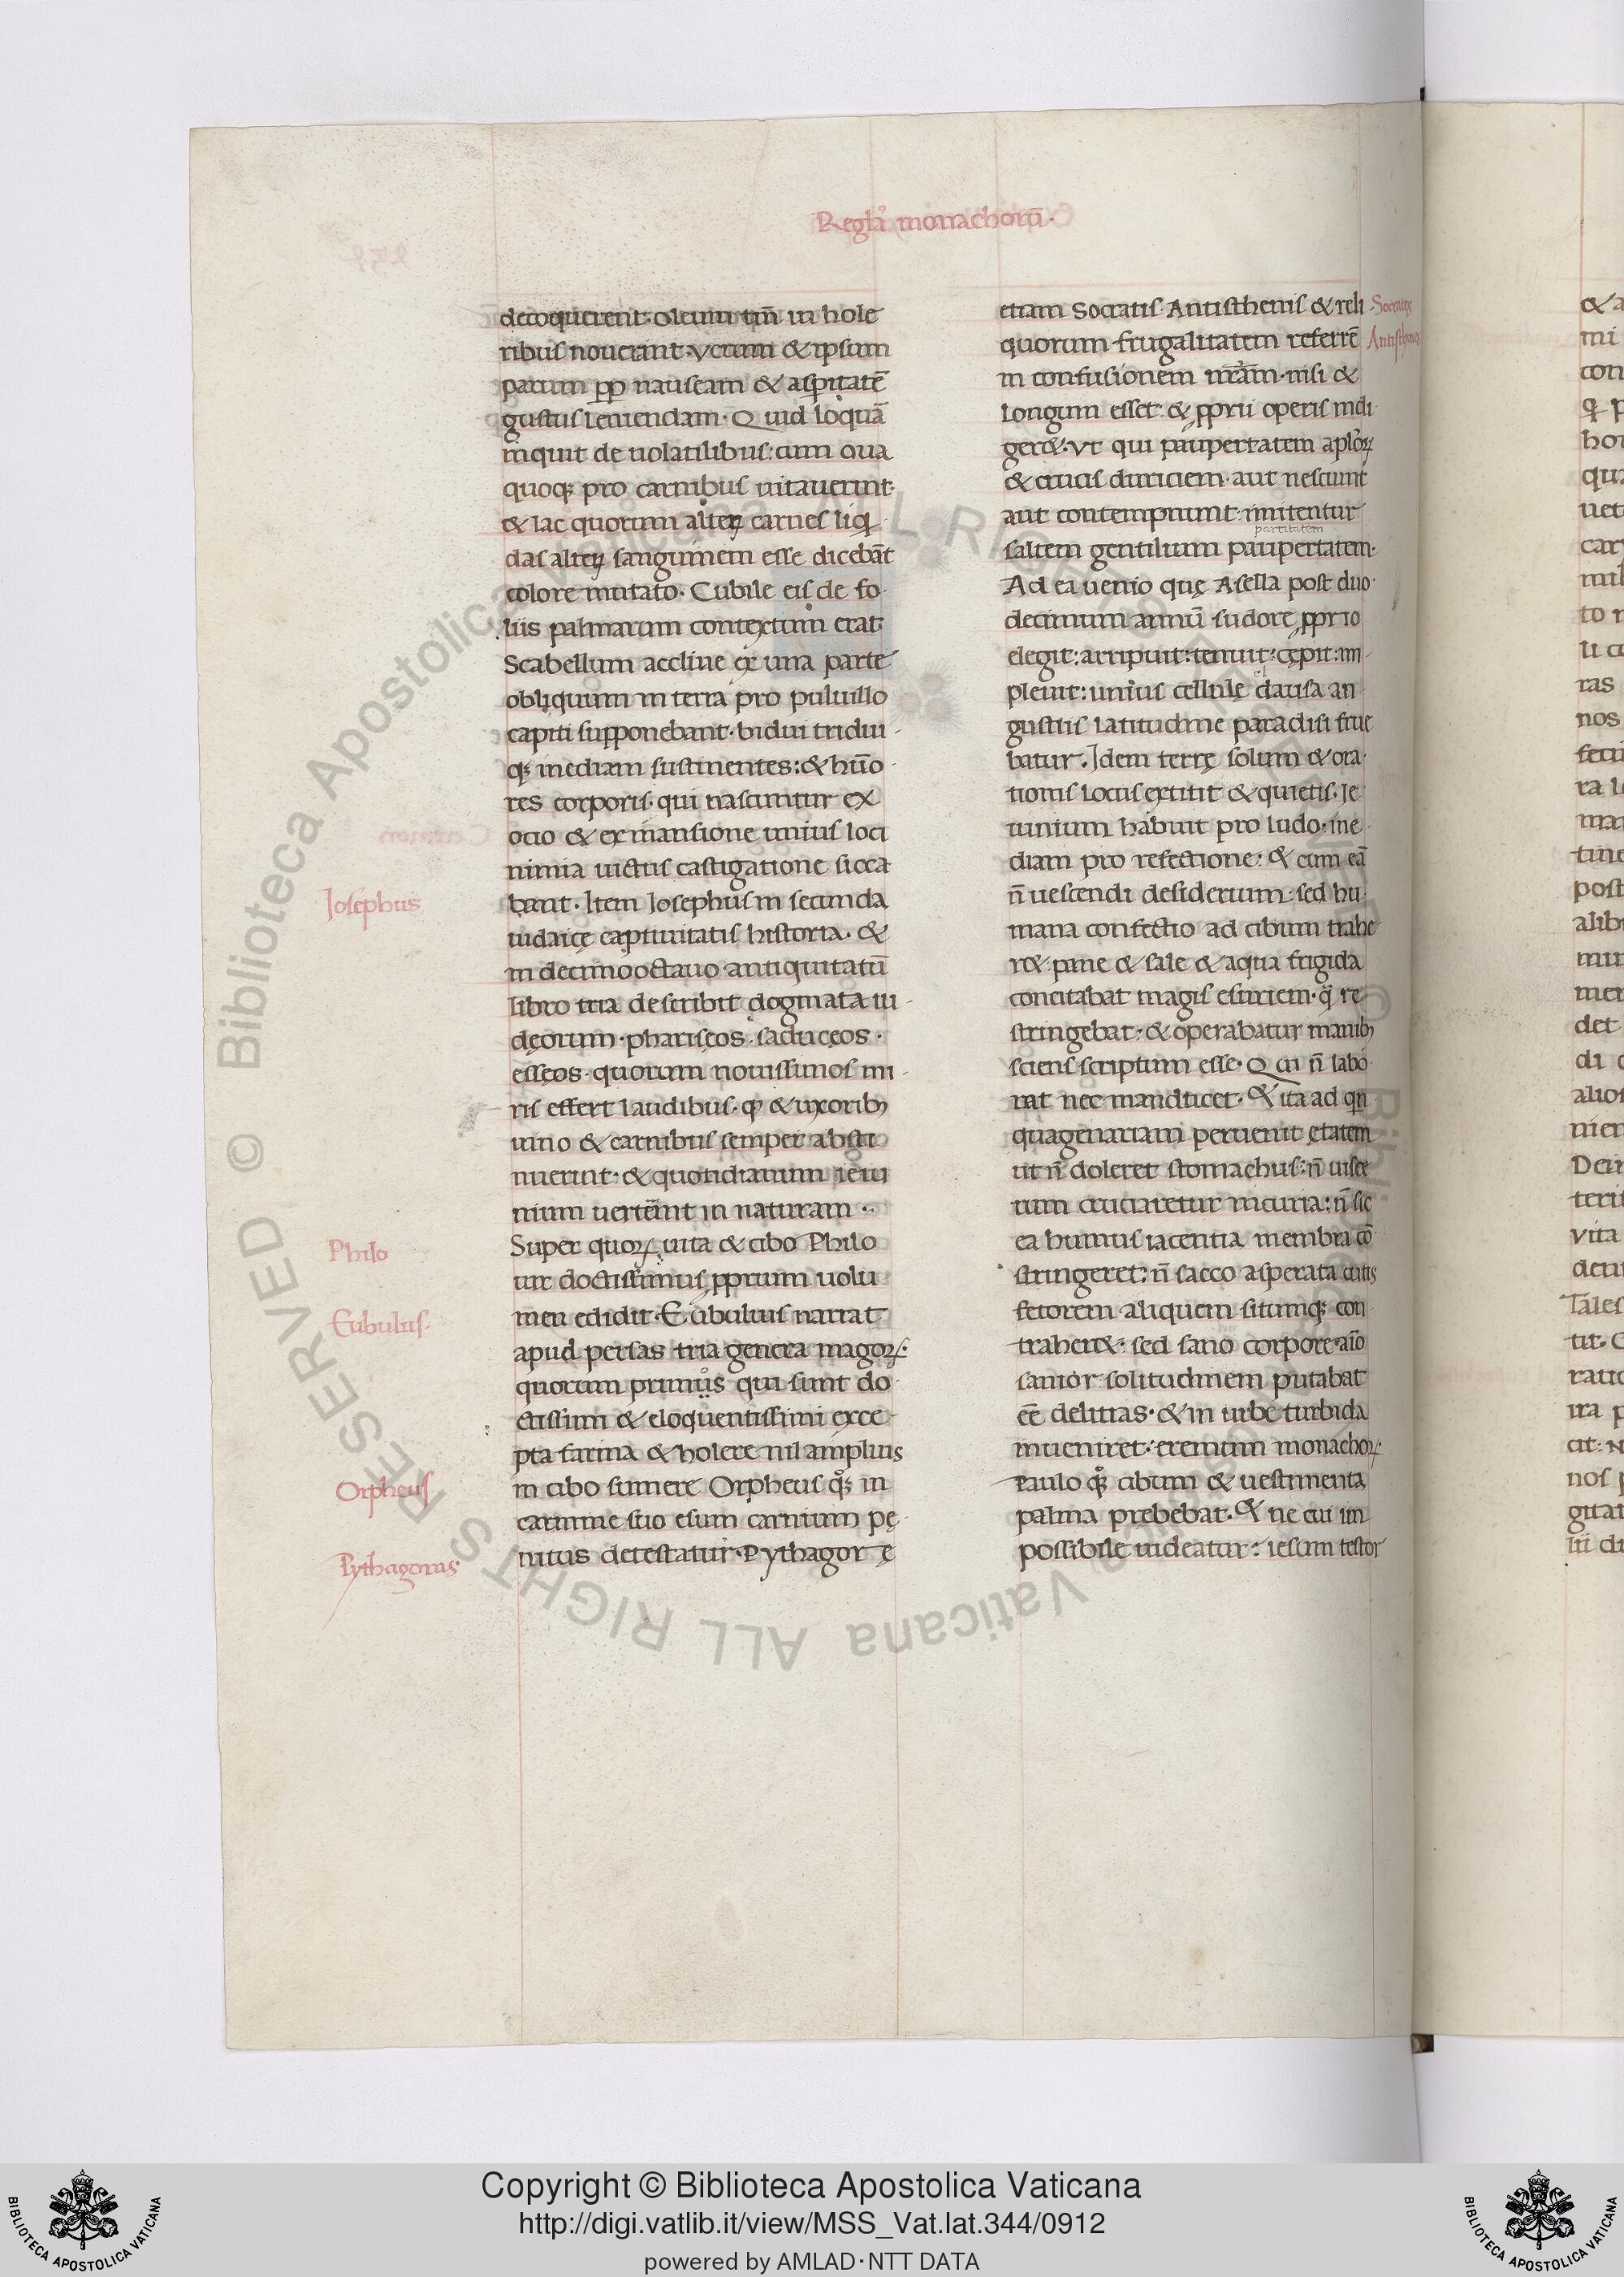 Regła monachoꝝ.
decoquerent. Oleum tm̄ in hole
ribus nouerint. Verum & ipsum
parum ꝓp nauseam & asp̱itatē
gustus leniendam. Quid loquā
inquit de uolatilibus: cum oua
quoq; pro carnibus uitauerint.
& lac quorum alteꝝ carnes liq̇
das alteꝝ sanguinem esse dicebāt
colore mutato. Cubile eis de fo
liis palmarum contextum erat.
Scabellum accliue ex una parte
obliquum in terra pro puluillo
capiti supponebant. bidui tridui
q; inediam sustinentes: & hūo
res corporis. qui nascuntur ex
ocio & ex mansione unius loci
nimia uictus castigatione sicca
bant. Item Iosephus in secunda
iudaicę captiuitatis historia. &
in decimo octauo antiquitatū
libro tria describit dogmata iu
dęorum. phariseos. saducęos.
esseos. quorum nouissimos mi
ris effert laudibus. ꝙ & uxoribꝫ
uino & carnibus semper absti
nuerint. & quotidianum ieiu
nium uerterint in naturam.
Super quoꝝ uita & cibo Philo
uir doctissimus ꝓprium uolu
men edidit. Eubulus narrat
apud persas tria genera magoꝝ.
quorum primus qui sunt do
ctissimi & eloquentissimi exce
pta farina & holere nil amplius
in cibo sumere Orpheus q̊; in
carmine suo esum carnium pę
nitus detestatur. Pythagorę
Iosephus
Philo
Eubulus.
Orpheus
Pythagoras
etiam Socratis Antisthenis & reli
quorum frugalitatem referrē
in confusionem nr̄am. nisi &
longum esset. & ꝓprii operis indi
ger&. Vt qui paupertatem apl̓oꝝ
& crucis duriciem. aut nesciunt
aut contemnunt. imitentur
saltem gentilium paupertatem.
Ad ea uenio quę Asella post duo
decimum annū sudore ꝓprio
elegit: arripuit: tenuit: cępit: im
pleuit: unius cellulę clausa an
gustiis latitudine paradisi frue
batur. Idem terrę solum & ora
tionis locus extitit & quietis. Ie
iunium habuit pro ludo. ine
diam pro refectione: & cum eā
n̄ uescendi desiderium. sed hu
mana confectio ad cibum trahe
r&. pane & sale & aqua frigida
concitabat magis esuriem. q̄ re
stringebat: & operabatur manibꝫ
sciens scriptum esse. Qui n̄ labo
rat nec manducet. & ita ad qn̄
quagenariam peruenit ętatem
ut n̄ doleret stomachus: n̄ uisce
rum cruciaretur incuria: n̄ sic
ea humus iacentia membra cō
stringeret: n̄ sacco asperata cutis
fetorem aliquem situmq; con
traher&: sed sano corpore. aīo
sanior solitudinem putabat
ēē delitias. & in urbe turbida
inueniret. eremum monachoꝝ.
Paulo q̊; cibum & uestimenta
palma prebebat. & ne cui im
possibile uideatur: iesum testor
Socrates
Antisthenes
Copyright © Biblioteca Apostolica Vaticana
http://digi.vatlib.it/view/MSS_Vat.lat.344/0912
powered by AMLAD·NTT DATA
BIBLIOTECA APOSTOLICA VATICANA
BIBLIOTECA APOSTOLICA VATICANA